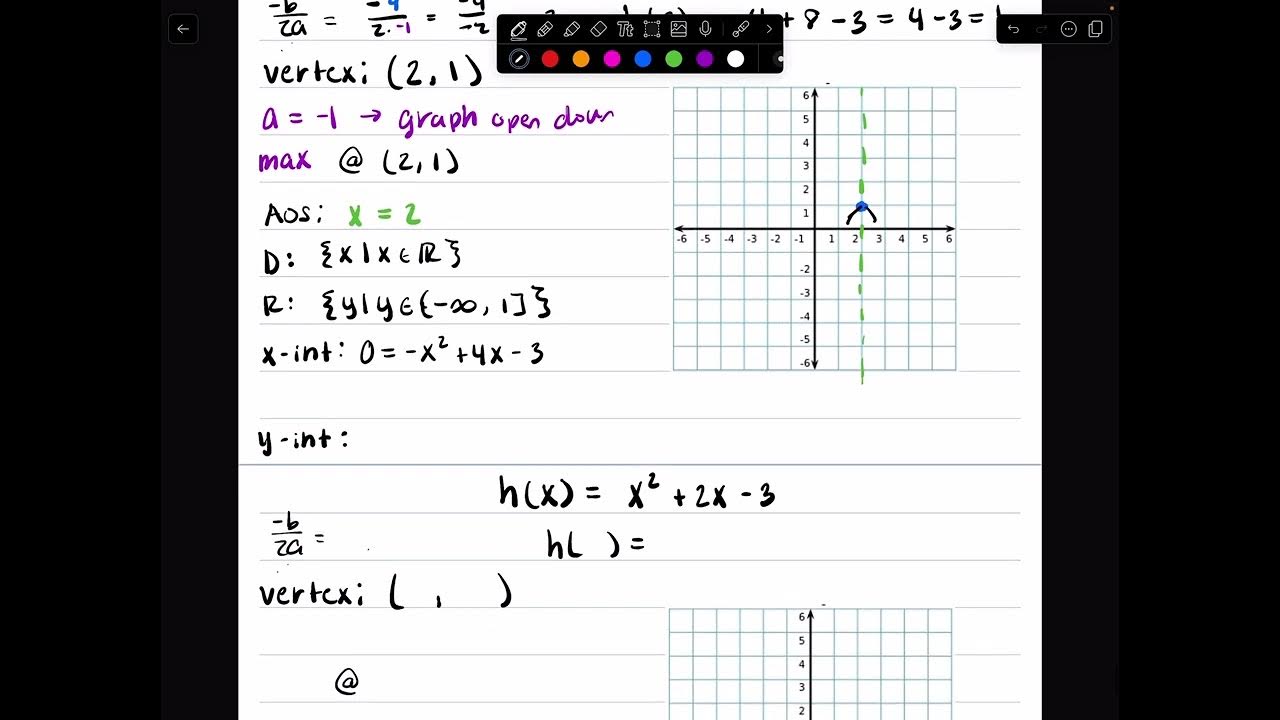 -b/2a = -4/2·-1 = -4/-2 + 8 - 3 = 4 - 3 = 1
vertex: (2, 1)
a = -1 → graph open down
max @ (2, 1)
AOS: x = 2
D: {x | x ∈ ℝ}
R: {y | y ∈ (-∞, 1]}
x-int: 0 = -x² + 4x - 3
y-int:
6
5
4
3
2
1
-6 -5 -4 -3 -2 -1 1 2 3 4 5 6
-2
-3
-4
-5
-6
h(x) = x² + 2x - 3
-b/2a = h( ) =
vertex: ( , )
@
6
5
4
3
2